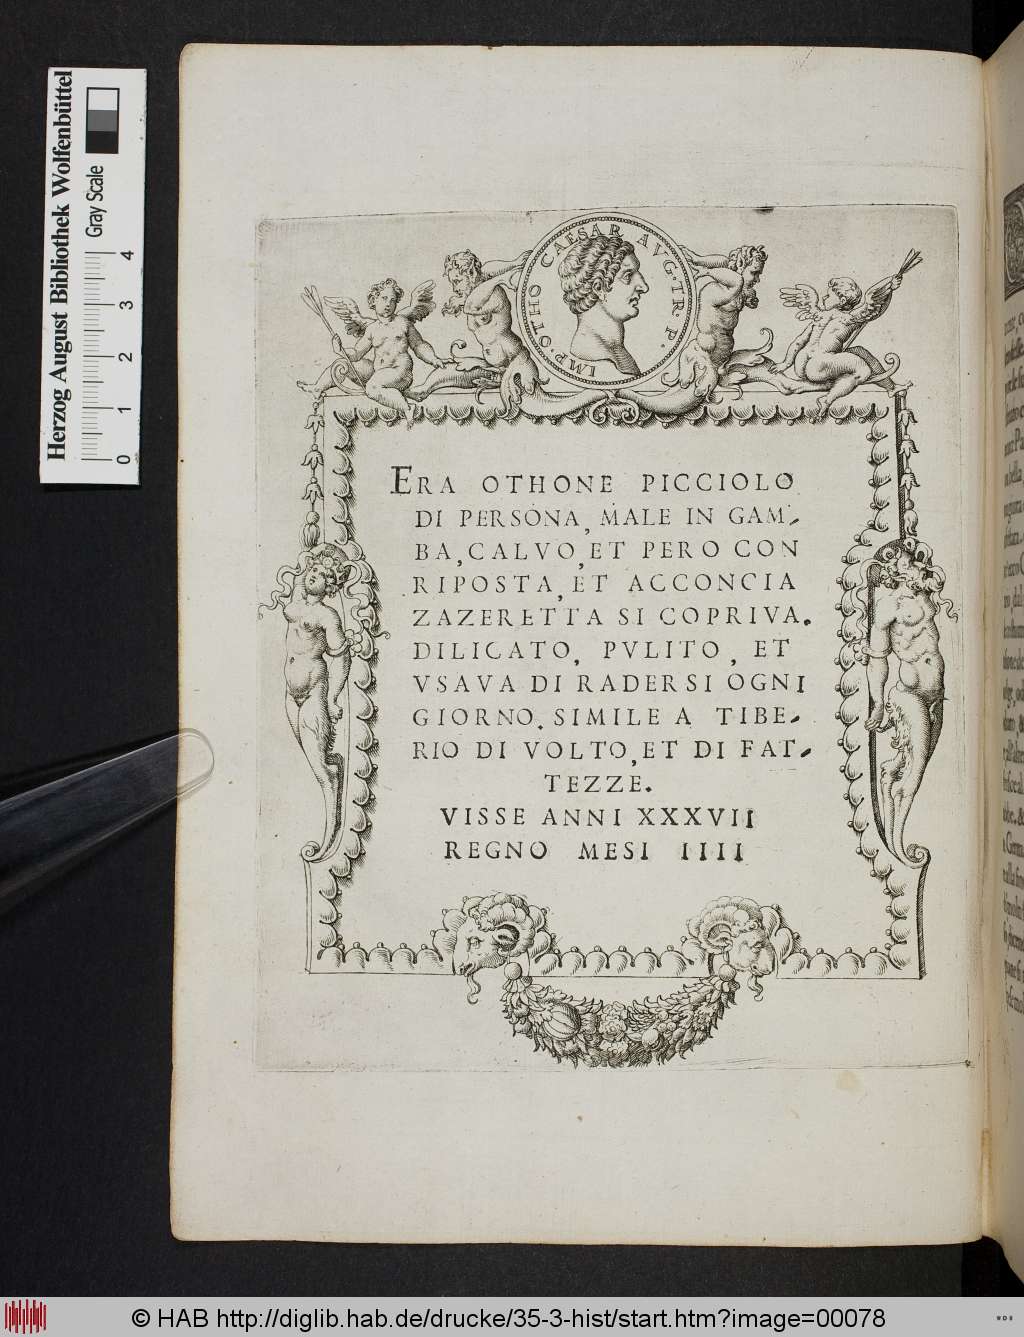 Herzog August Bibliothek Wolfenbüttel
Gray Scale
0 1 2 3 4
IMP · OTHO CAESAR AVG · TR · P
ERA OTHONE PICCIOLO
DI PERSONA, MALE IN GAM-
BA, CALVO, ET PERO CON
RIPOSTA, ET ACCONCIA
ZAZERETTA SI COPRIVA.
DILICATO, PVLITO, ET
VSAVA DI RADERSI OGNI
GIORNO. SIMILE A TIBE-
RIO DI VOLTO, ET DI FAT-
TEZZE.
VISSE ANNI XXXVII
REGNO MESI IIII
© HAB http://diglib.hab.de/drucke/35-3-hist/start.htm?image=00078